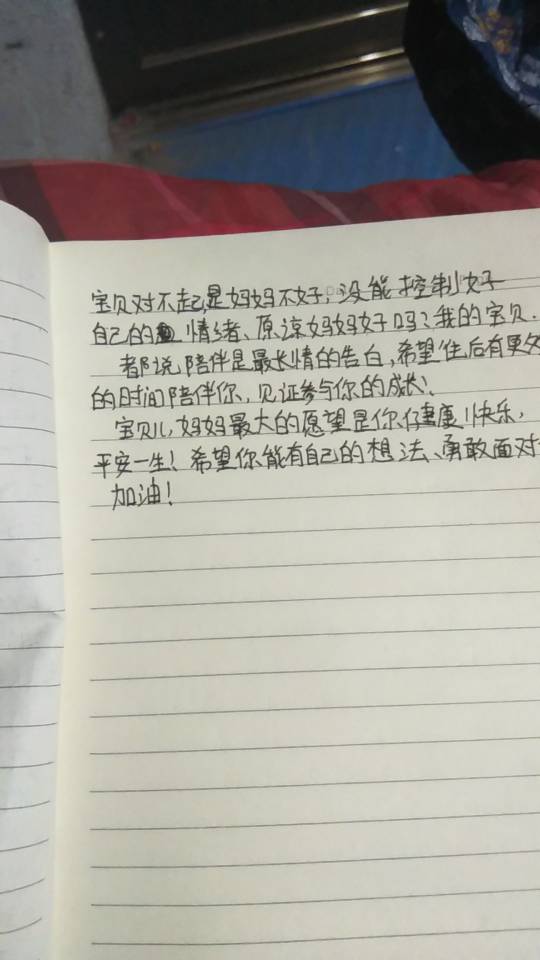 宝贝对不起,是妈妈不好,没能控制好
自己的情绪、原谅妈妈好吗?我的宝贝.
都说陪伴是最长情的告白,希望往后有更多
的时间陪伴你、见证参与你的成长!
宝贝儿,妈妈最大的愿望是你健康快乐,
平安一生!希望你能有自己的想法、勇敢面对
加油!